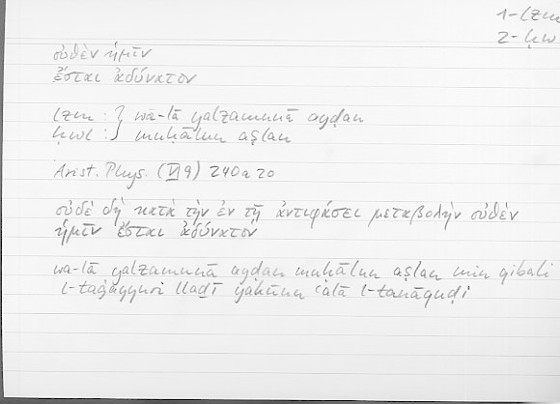 1-lzm
2-ḥw
οὐθὲν ἡμῖν
ἔσται ἀδύνατον
lzm : } wa-lā yalzamunā ayḍan
ḥwl : } muḥālun aṣlan
Arist. Phys. (VI 9) 240a20
οὐδὲ δὴ κατὰ τὴν ἐν τῇ ἀντιφάσει μεταβολὴν οὐθὲν
ἡμῖν ἔσται ἀδύνατον
wa-lā yalzamunā ayḍan muḥālun aṣlan min qibali
l-taġayyuri llaḏī yakūnu ʿalā l-tanāquḍi